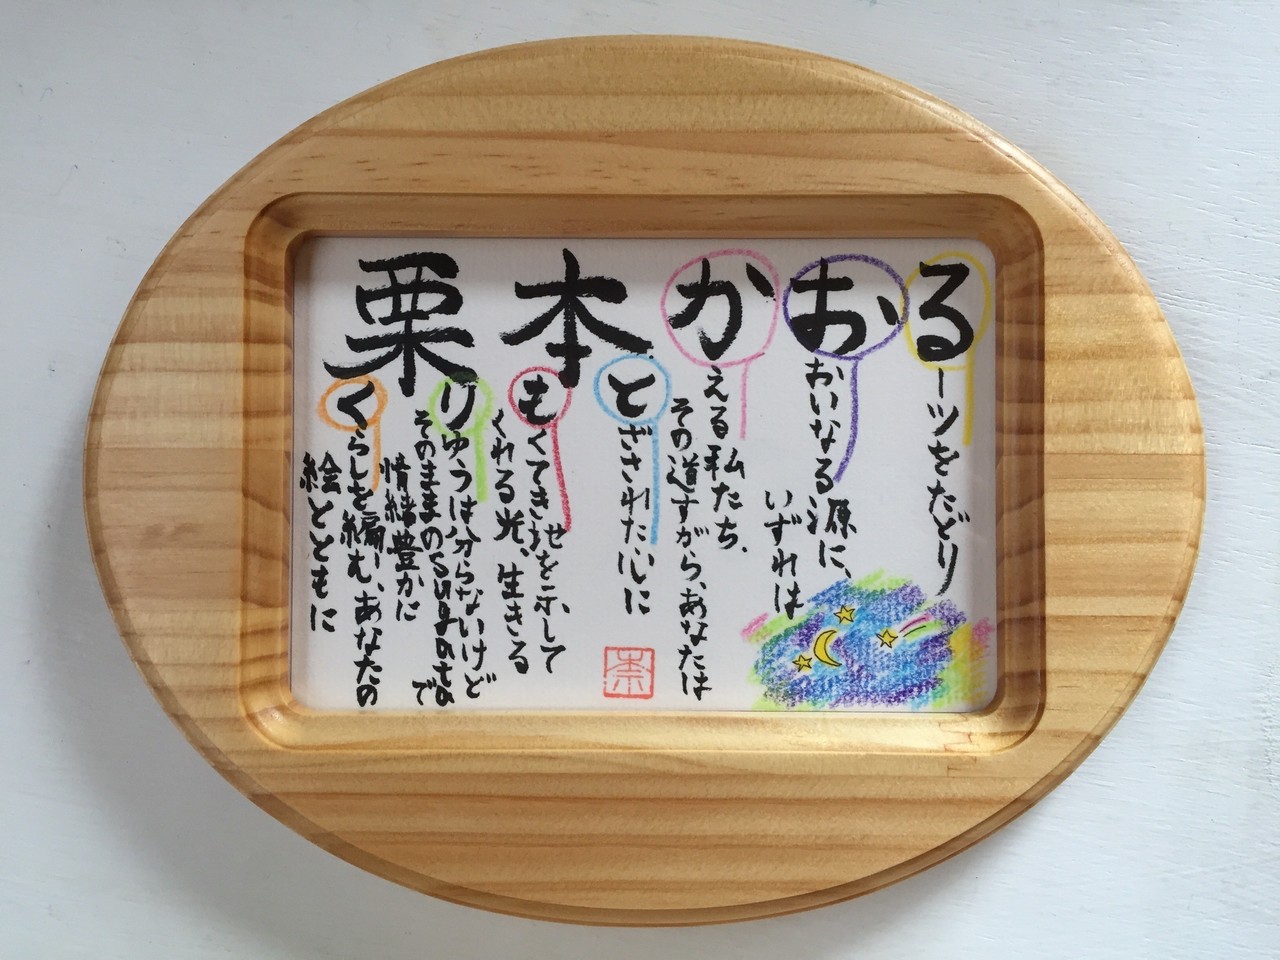 栗本かおる
るーツをたどり
おおいなる源に、
いずれは
かえる私たち、
その道すがら、あなたは
とざされた心に
もくてき地を示して
くれる光、生きる
りゆうは分からないけど
そのままのすなおさで
情緒豊かに
くらしを編む、あなたの
絵とともに